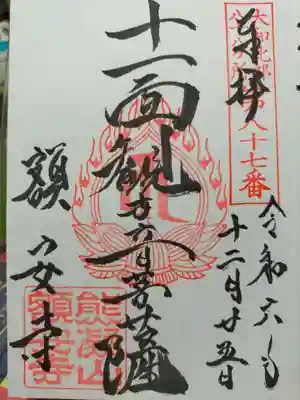 大和北部
八十八ヶ所第八十七番
奉拝
令和六年
十二月廿五日
十一面観世音菩薩
額安寺
熊凝山
額安寺